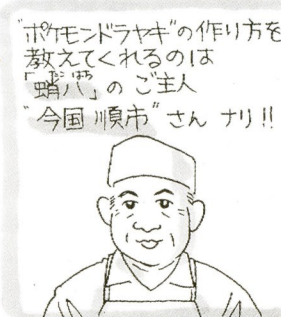 "ポケモンドラヤキ"の作り方を
教えてくれるのは
「蛸八」の ご主人
だ はち
"今国 順市"さん ナリ!!